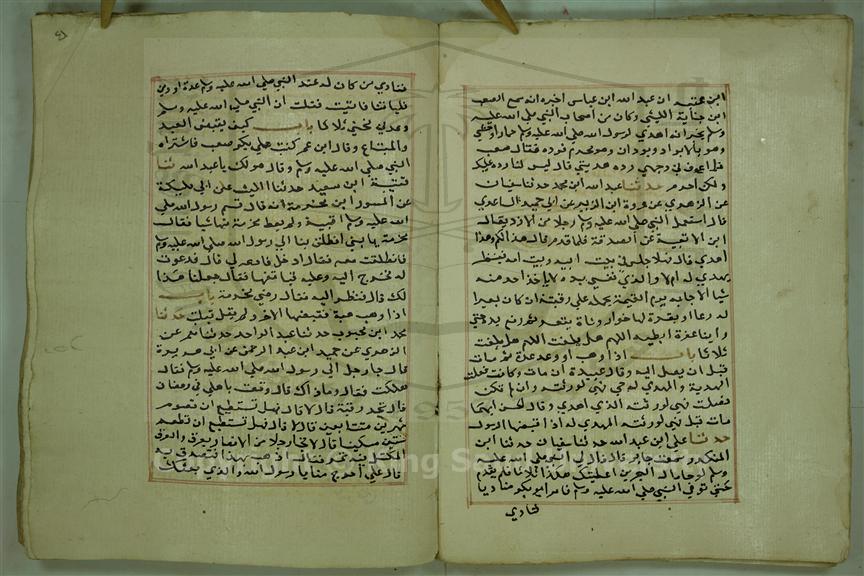 ابن عتبه ان عبد الله ابن عباس اخبره انه سمع الصعب
ابن جثامة الليثي وكان من اصحاب النبي صلى الله عليه
وسلم يخبر انه اهدي لرسول الله صلى الله عليه وسلم حمار وحشي
وهو بالابواء او بودان وهو محرم فرده فقال صعب
فلما عرف في وجهي رده هديتي قال ليس بنا رد عليك
ولكنا حرم حدثنا عبد الله ابن محمد حدثنا سفيان
عن الزهري عن عروة ابن الزبير عن ابي حميد الساعدي
قال استعمل النبي صلى الله عليه وسلم رجلا من الازد يقال له
ابن الاتبية عن الصدقة فلما قدم قال هذا لكم وهذا
اهدي قال فهلا جلس في بيت ابيه وبيت امه فينظر
يهدي له ام لا والذي نفسي بيده لا ياخذ احد منه
شيا الا جا به يوم القيمة يحمله على رقبته ان كان بعيرا
له رغا او بقرة لها خوار او شاة تيعر ثم رفع يده حتى
راينا عفرة ابطيه اللهم هل بلغت اللهم هل بلغت
ثلاثا باب اذا وهب او وعد عدة ثم مات
قبل ان يصل اليه وقال عبيدة ان مات وكانت فصلت
الهدية والمهدي له حي فهي لورثته وان لم تكن
فصلت فهي لورثته الذي اهدي وقال الحسن ايهما
مات قبل فهي لورثته المهدي له اذا قبضها الرسول
حدثنا علي ابن عبد الله حدثنا سفيان حدثنا ابن
المنكدر سمعت جابر قال قال لي النبي صلى الله عليه
وسلم لو جا مال البحرين اعطيتك هكذا ثلاثا فلم يقدم
حتى توفي النبي صلى الله عليه وسلم فامر ابو بكر مناديا
فنادي
فنادي من كان له عند النبي صلى الله عليه وسلم عدة او دين
فلياتنا فاتيت فقلت ان النبي صلى الله عليه وسلم
وعدني فحثى لي ثلاثا باب كيف يقبض العبد
والمتاع وقال ابن عمر كنت على بكر صعب فاشتراه
النبي صلى الله عليه وسلم وقال هو لك يا عبد الله ثنا
قتيبة ابن سعيد حدثنا الليث عن ابن ابي مليكة
عن المسور ابن مخرمة انه قال قسم رسول الله صلى
الله عليه وسلم اقبية ولم يعط مخرمة منها شيا فقال
مخرمة يا بني انطلق بنا الى رسول الله صلى الله عليه وسلم
فانطلقت معه فقال ادخل فادعه لي قال فدعوته
له فخرج اليه وعليه قبا منها فقال خبانا هذا
لك قال فنظر اليه فقال رضي مخرمة باب
اذا وهب هبة فقبضها الاخر ولم يقل قبلت حدثنا
محمد ابن محبوب حدثنا عبد الواحد حدثنا معمر عن
الزهري عن حميد ابن عبد الرحمن عن ابي هريرة
قال جا رجل الى رسول الله صلى الله عليه وسلم فقال
هلكت فقال وما ذاك قال وقعت باهلي في رمضان
قال تجد رقبة قال لا قال فهل تستطيع ان تصوم
شهرين متتابعين قال لا قال فهل تستطيع ان تطعم
ستين مسكينا قال لا فجا رجل من الانصار بعرق والعرق
المكتل فيه تمر فقال اذهب بهذا فتصدق به
قال على احوج منا يا رسول الله والذي بعثك